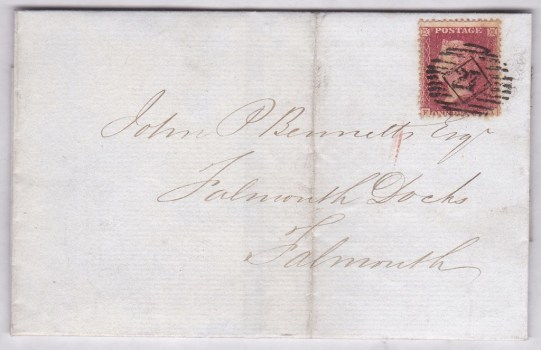 POSTAGE
John P Bennetts Esqr
Falmouth Docks
Falmouth